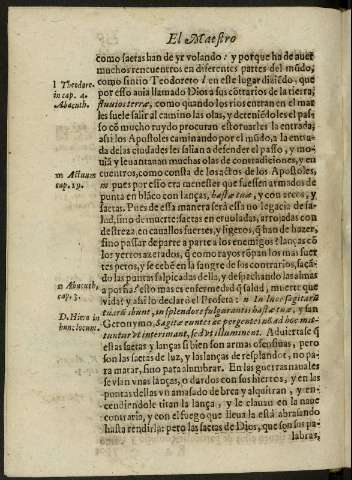 El Maestro
como saetas han de yr volando: y porque ha de auer
muchos rencuentros en diferentes partes del mũdo,
como sintio Teodoreto l en este lugar diziẽdo, que
por esso auia llamado Dios a sus cõtrarios de la tierra,
fluuios terræ, como quando los rios entran en el mar
les suele salir al camino las olas, y deteniẽdoles el pas-
so cõ mucho ruydo procuran estoruarles la entrada,
assi los Apostoles caminando por el mũdo, a la entra-
da de las ciudades les salian a defender el passo, y mo-
uiã y leuantauan muchas olas de contradiciones, y en
cuentros, como consta de los actos de los Apostoles,
m pues por esso era menester que fuessen armados de
punta en blãco con lanças, hastæ tuæ, y con arcos, y
saetas. Pues de essa manera serà essa no legacia de sa-
lud, sino de muerte: saetas en eruoladas, arrojadas con
destreza en cauallos fuertes, y ligeros, q̃ han de hazer,
sino passar de parte a parte a los enemigos? lanças cõ
los yerros azerados, q̃ como rayos rõpan los mas fuer
tes petos, y se cebẽ en la sangre de los contrarios, sacã
do las puntas salpicadas dello, y despachando las almas
a porfia? esto mas es enfermedad q̃ salud, muerte que
vida? y assi lo declarò el Profeta: n In luce sagittarũ
tuarũ ibunt, in splendore fulgurantis hastæ tuæ, y san
Geronymo, Sagitæ euntes ac pergentes nõ ad hoc mit-
tuntur vt interimant, sed vt illuminent. Aduiertase q̃
estas saetas y lanças si bien son armas ofensiuas, pero
son las saetas de luz, y las lanças de resplandor, no pa-
ra matar, sino para alumbrar. En las guerras nauales
se vsan vnas lanças, o dardos con sus hierros, y en las
puntas dellas vn amasado de brea y alquitran, y en-
cendiendole titan la lança, y se clauan en la naue
contraria, y con el fuego que lleua la està abrasando
hasta rendirla: pero las saetas de Dios, que son sus pa-
labras,
l Theodore.
in cap. 4.
Abacuth.
m Actuum
cap. 19.
n Abacuth,
cap. 3.
D. Hiero in
hunc locum.